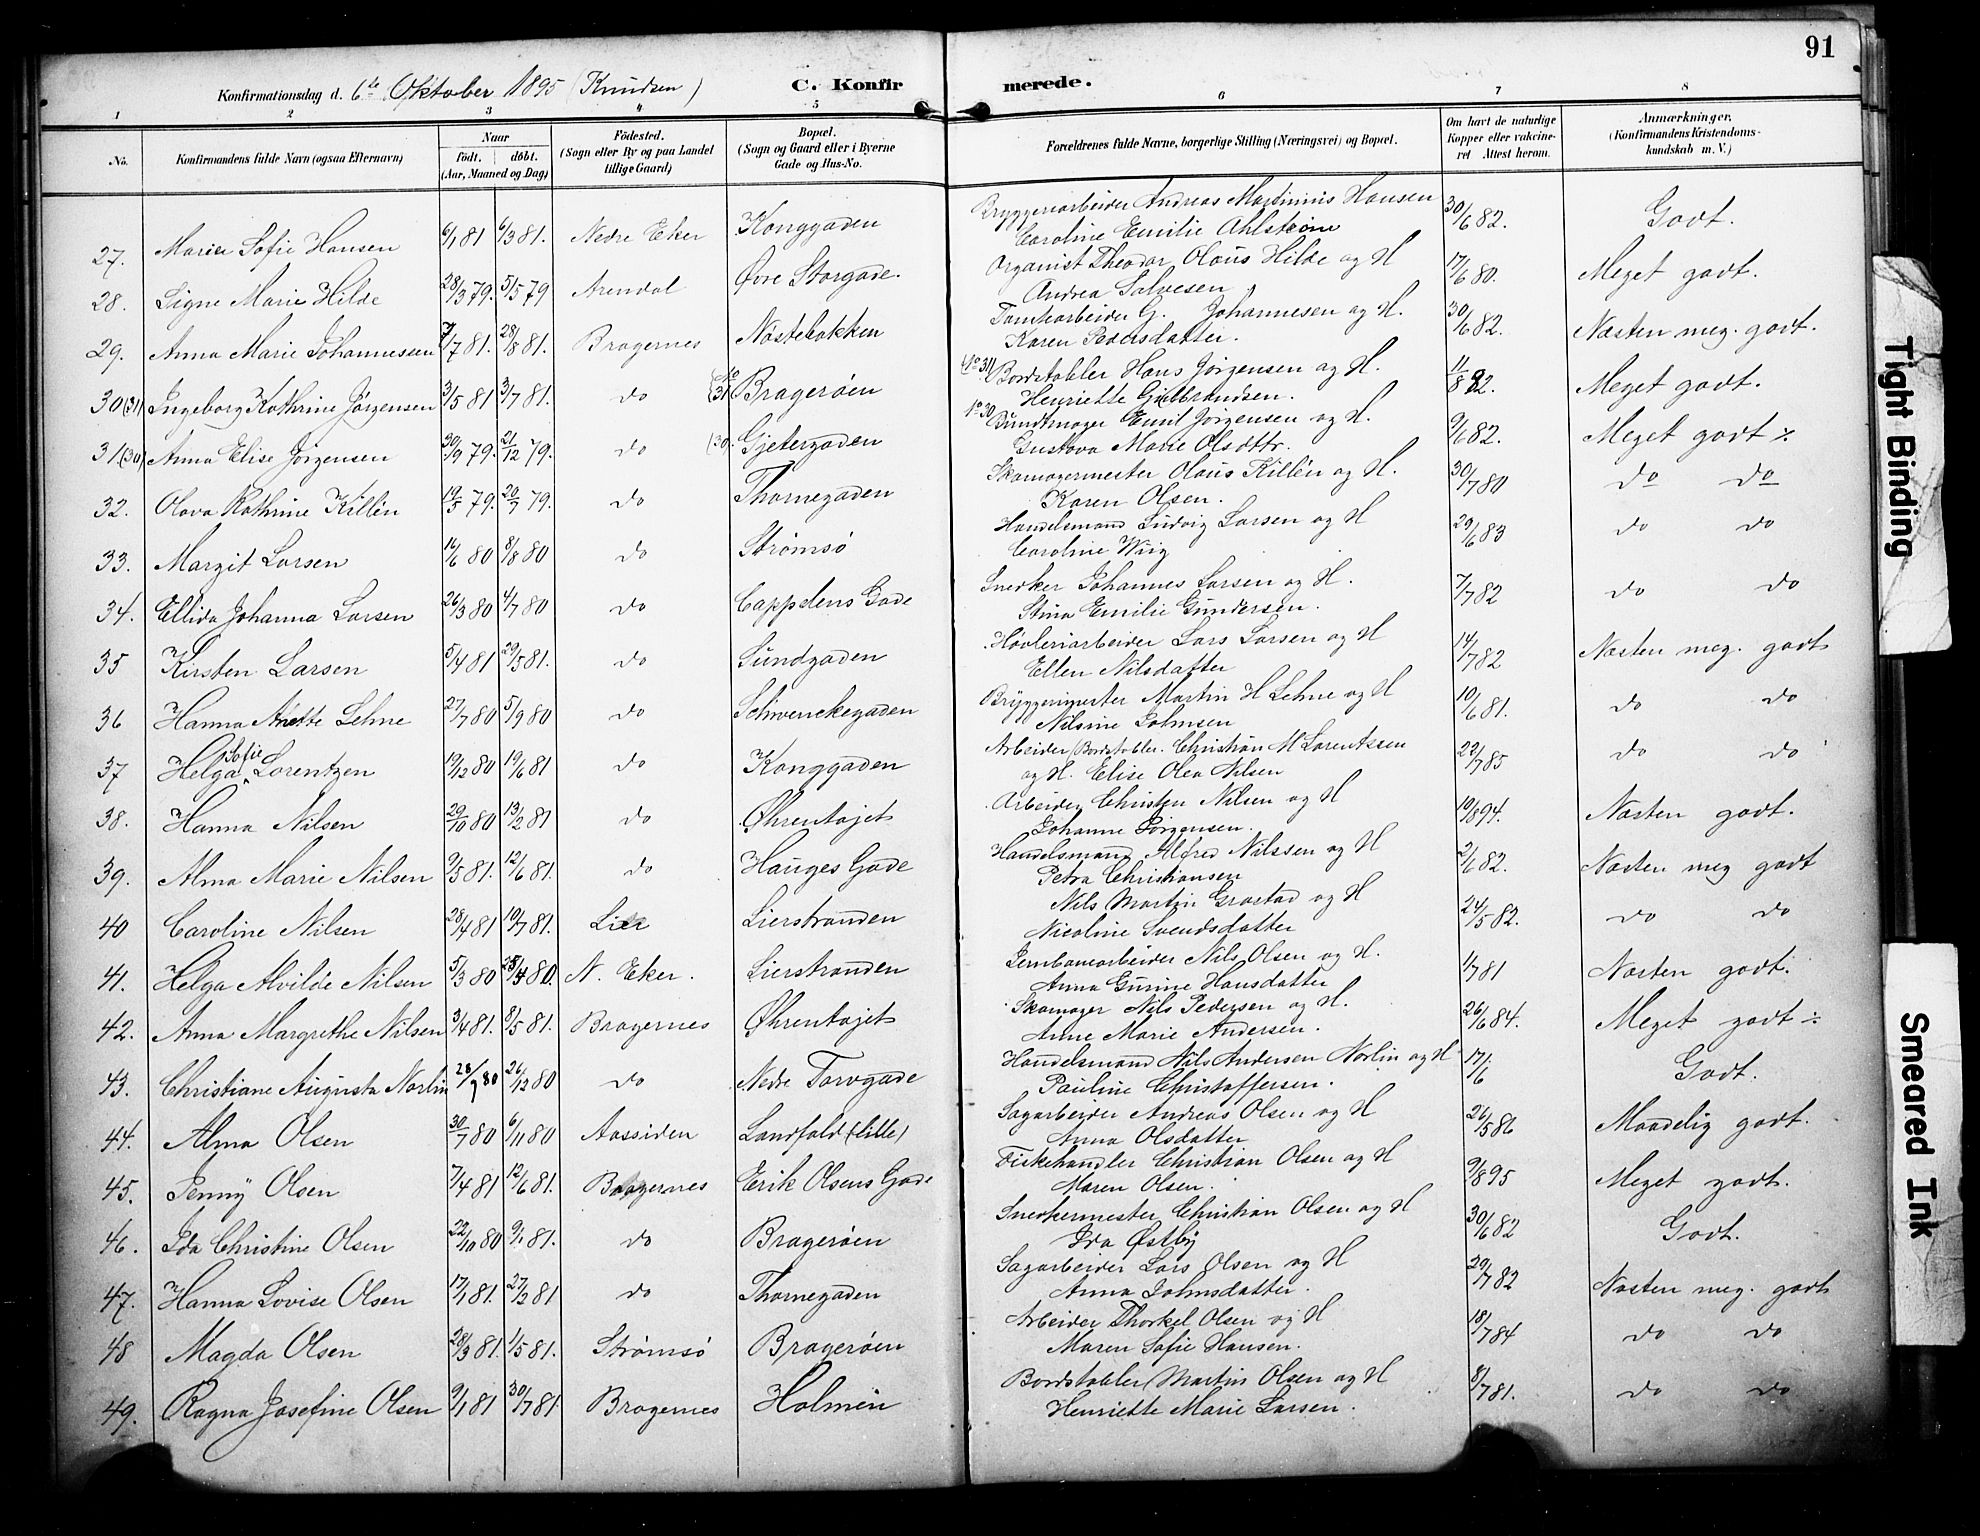 91
Konfirmationsdag d. 6te Oktober 1895 (Knudsen) C. Konfirmerede.
1 2 3 4 5 6 7 8
No. Konfirmandens fulde Navn (ogsaa Efternavn) Naar født. døbt. (Aar, Maaned og Dag) Fødested. (Sogn eller By og paa Landet tillige Gaard) Bopæl. (Sogn og Gaard eller i Byerne Gade og Hus-No. Forældrenes fulde Navne, borgerlige Stilling (Næringsvei) og Bopæl. Om havt de naturlige Kopper eller vakcineret Attest herom. Anmærkninger, (Konfirmandens Kristendomskundskab m. V.)
27. Marie Sofie Hansen 6/1 81 6/3 81. Nedre Eker Konggaden Bryggeriarbeider Andreas Martinius Hansen 30/6 82. Godt.
Caroline Emilie Ahlstrøm
28. Signe Marie Hilde 28/3 79. 5/5 79 Arendal Øvre Storgade. Organist Theodor Olaus Hilde og H 17/6 80. Meget godt.
Andrea Salvesen
29. Anna Marie Johannesen 7/7 81. 28/8 81. Bragernes Nøstebakken Tomtearbeider G. Johannesen og H. 30/6 82. Næsten meg. godt.
Karen Pedersdatter.
30(31) Ingeborg Kathrine Jørgensen 3/5 81 3/7 81. do (No 31 Bragerøen (No 31) Bordstabler Hans Jørgensen og H. 11/8 82. Meget godt.
Henriette Gulbrandsen.
31(30) Anna Elise Jørgensen 30/9 79. 21/12 79. do (30. Gjetergaden No 30 Bundtmager Emil Jørgensen og H. 9/6 82. Meget godt ⁒
Gustava Marie Olsdttr.
32. Olava Kathrine Killén 19/5 79. 20/7 79. do Thornegaden Skomagermester Olaus Killén og H. 30/7 80 do do
Karen Olsen.
33. Margit Larsen 16/6 80 8/8 80 do Strømsø Handelsmand Ludvig Larsen og H 29/6 83 do do
Caroline Wiig
34. Ellida Johanna Larsen 26/3 80 4/7 80 do Cappelens Gade Snedker Johannes Larsen og H. 7/7 82 do do
Stina Emilie Gundersen.
35 Kirsten Larsen 5/4 81 29/5 81. do Sundgaden Høvleriarbeider Lars Larsen og H 14/7 82 Næsten meg. godt
Ellen Nilsdatter
36 Hanna Anette Lehne 27/7 80 5/9 80 do Schwenckegaden Bryggerimester Martin H Lehne og H 10/6 81. do do
Nilsine Johnsen
37 Helga Sofie Lorentzen 19/12 80 19/6 81 do Konggaden Arbeider, Bordstabler. Christian M Lorentzen 22/7 85 do do
og H. Elise Olea Nilsen
38. Hanna Nilsen 29/10 80 13/2 81 do Øhrentøjet Arbeider Christen Nilsen og H 10/8 94. Næsten godt.
Johanne Jørgensen.
39. Alma Marie Nilsen 9/5 81. 12/6 81. do Hauges Gade Handelsmand Alfred Nilssen og H 2/6 82. Næsten meg godt
Petra Christiansen
40 Caroline Nilsen 28/4 81 10/7 81. Lier Lierstranden Nils Martin Grøstad og H 24/5 82. do do
Nicoline Svendsdatter
41. Helga Alvilde Nilsen 5/3 80 25/4 80. N. Eker. Lierstranden Jernbanearbeider Nils Olsen og H. 1/7 81 Næsten godt.
Anna Gurine Hansdatter
42. Anna Margrethe Nilsen 3/4 81. 8/5 81. Bragernes Øhrentøjet Skomager Nils Pedersen og H. 26/6 84. Meget godt ⁒
Anne Marie Andersen.
43. Christiane Augusta Norlin 28/9 80 26/12 80 do Nedre Torvgade Handelsmand Nils Andersen Norlin og H 17/6 Godt.
Pauline Christoffersen.
44. Alma Olsen 30/7 80 6/11 80 Aassiden Landfald (lille) Sagarbeider Andreas Olsen og H 26/5 86 Maadelig godt.
Anna Olsdatter
45. Jenny Olsen 7/4 81 12/6 81. Bragernes Erik Olsens Gade Fiskehandler Christian Olsen og H 9/8 95 Meget godt.
Maren Olsen.
46. Ida Christine Olsen 22/10 80 9/1 81. do Bragerøen Snedkermester Christian Olsen og H 30/6 82 Godt.
Ida Østby
47. Hanna Lovise Olsen 17/1 81. 27/2 81 do Thornegaden Sagarbeider Lars Olsen og H 29/7 82 Næsten meg. godt
Anna Johnsdatter.
48 Magda Olsen 28/3 81. 1/5 81. Strømsø Bragerøen Arbeider Thorkel Olsen og H 18/7 84 do do
Maren Sofie Hansen.
49. Ragna Josefine Olsen 9/1 81 30/7 81. Bragernes Holmen Bordstabler Martin Olsen og H 8/7 81. do do
Henriette Marie Larsen.
Tight Binding
Smeared Ink